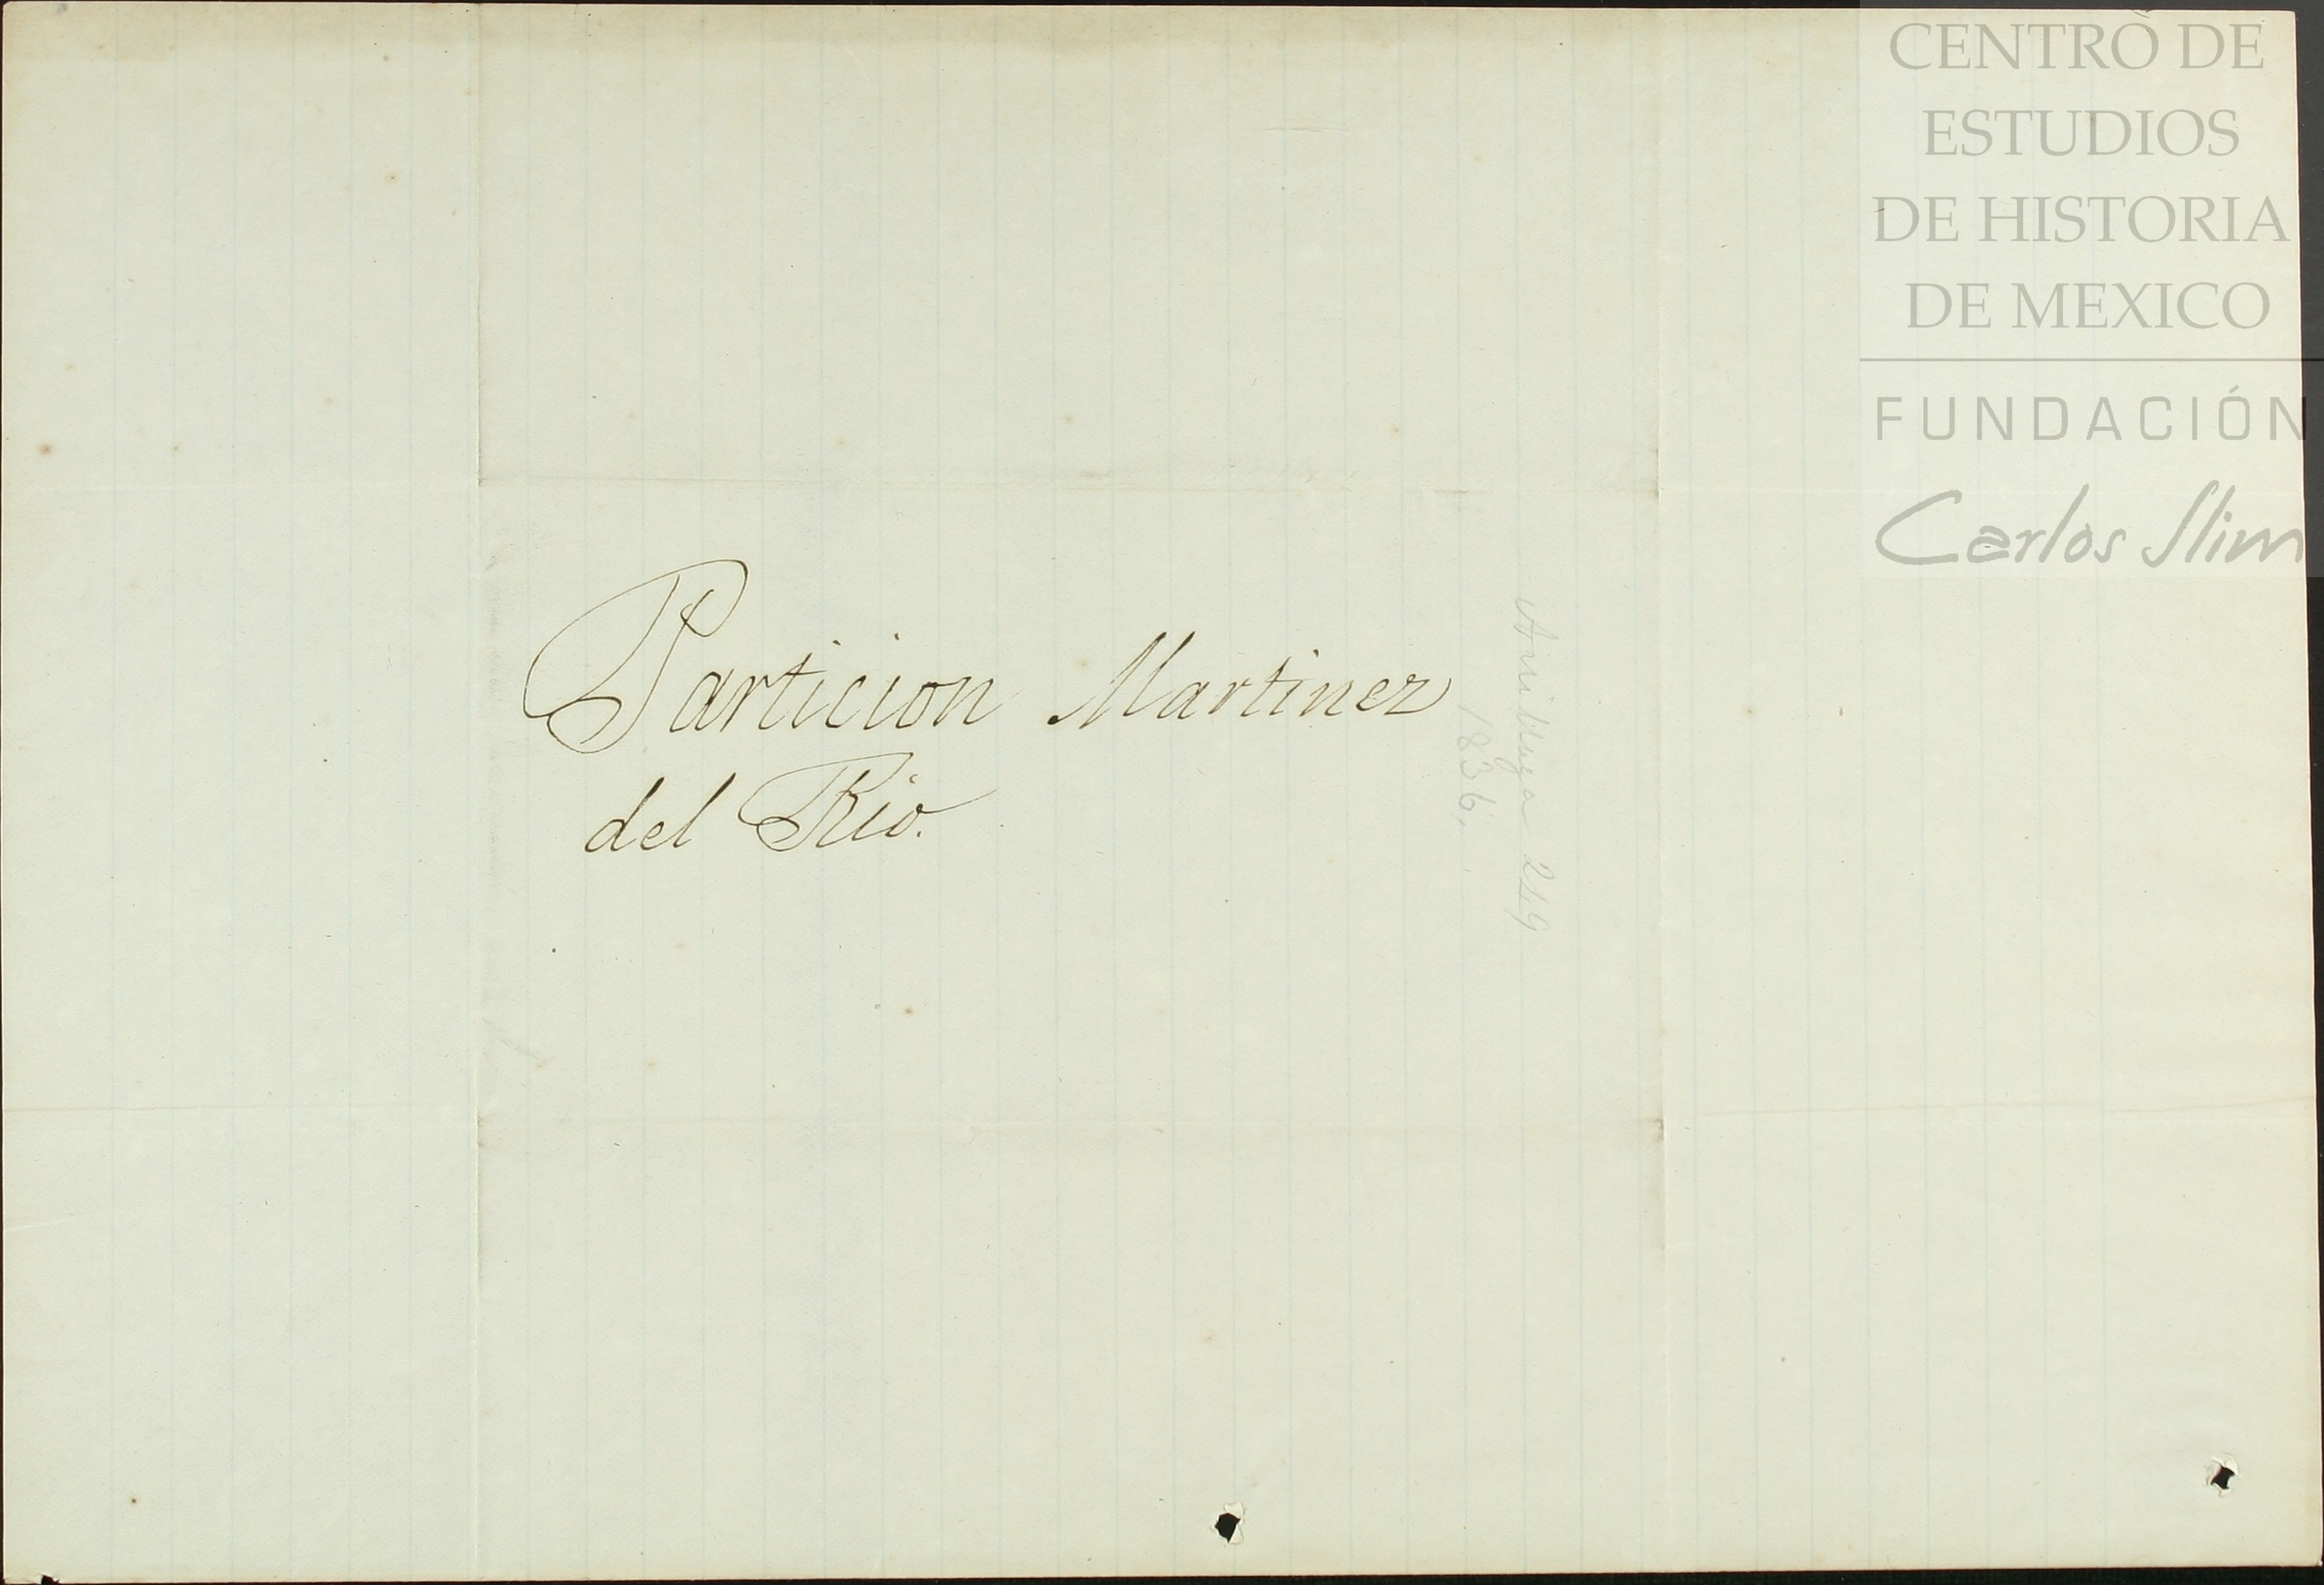 Particion Martinez
del Rio.
249
1836.
CENTRO DE
ESTUDIOS
DE HISTORIA
DE MEXICO
FUNDACIÓN
Carlos Slim